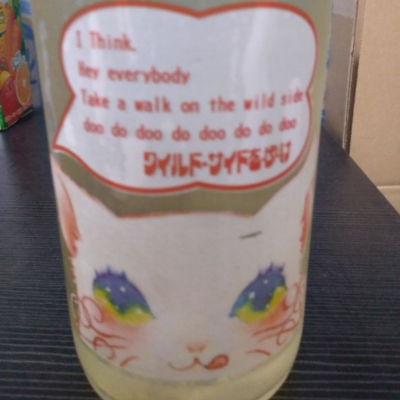 I Think.
Hey everybody
Take a walk on the wild side
doo do doo do doo do do doo
ワイルド・サイドを歩け